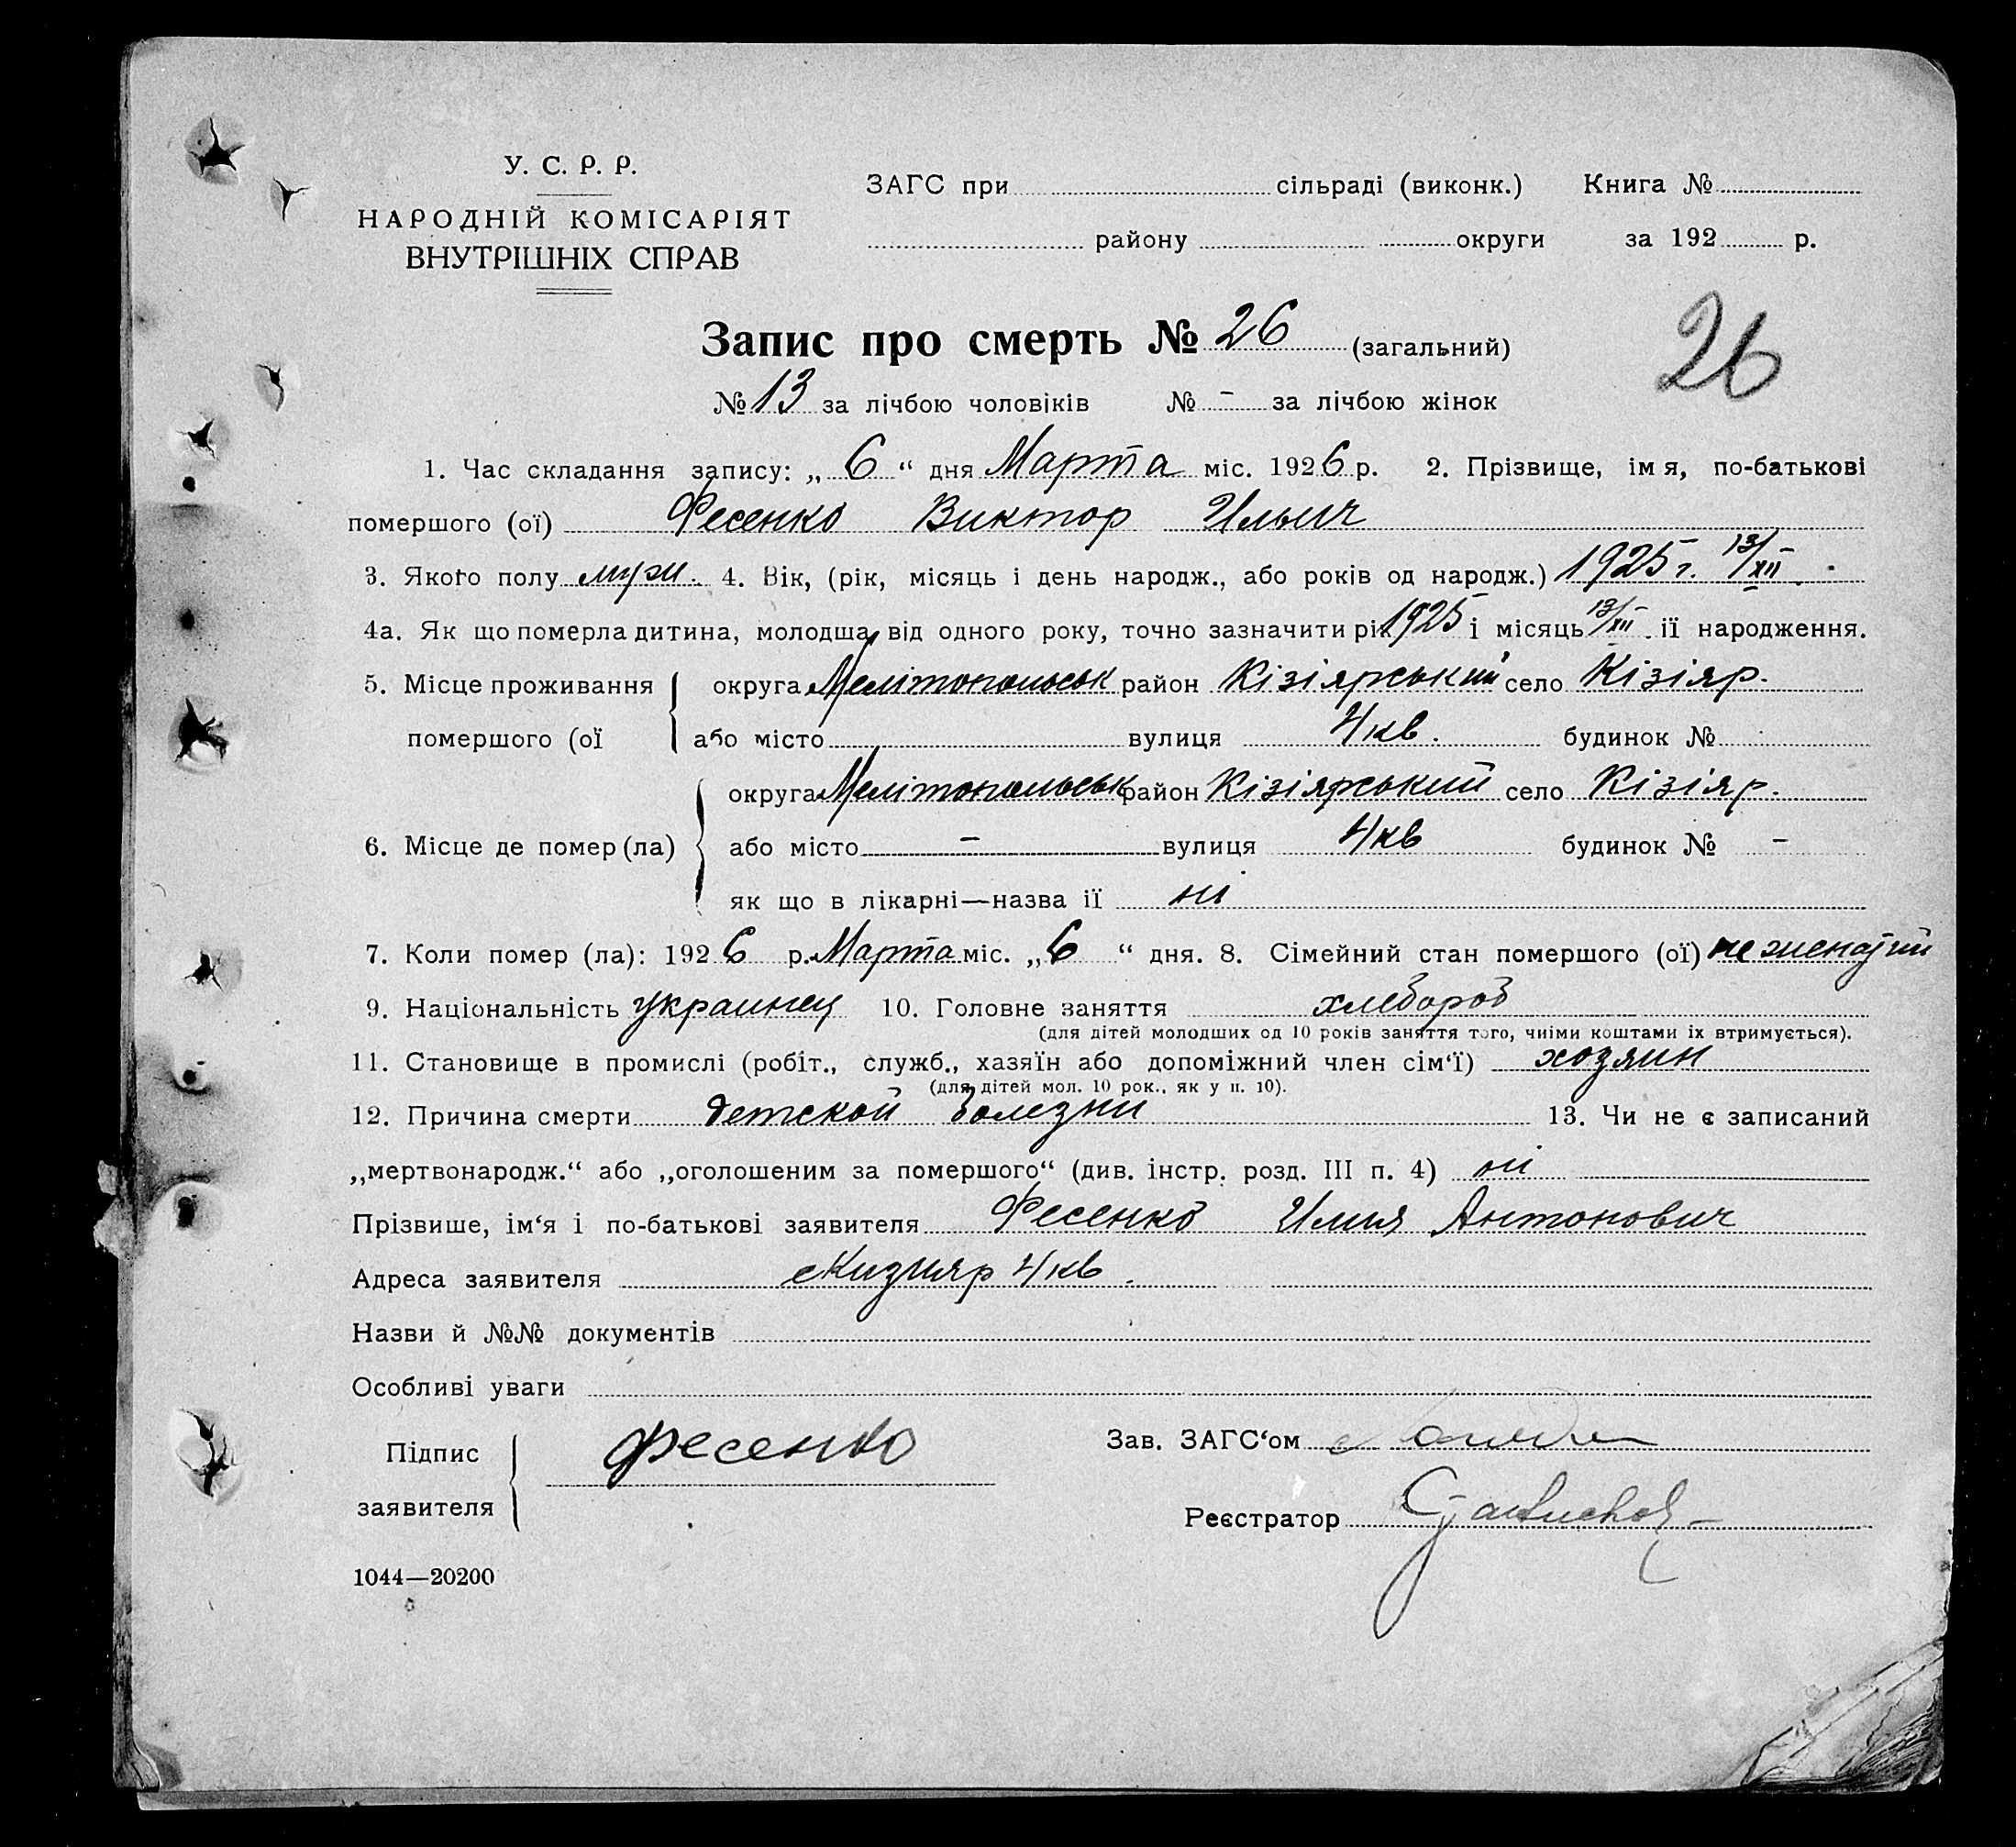 У. С. Р. Р.
НАРОДНІЙ КОМІСАРІЯТ
ВНУТРІШНІХ СПРАВ
ЗАГС при сільраді (виконк.) Книга №
району округи за 192 р.
26
Запис про смерть № 26 (загальний)
№ 13 за лічбою чоловіків № - за лічбою жінок
1. Час складання запису: „ 6 “ дня Марта міс. 1926 р. 2. Прізвище, імя, по-батькові
помершого (ої) Фесенко Виктор Ильич
3. Якого полу муж. 4. Вік, (рік, місяць і день народж., або років од народж.) 1925 г. 13/XII.
4а. Як що померла дитина, молодша від одного року, точно зазначити рік 1925 і місяць 13/XII її народження.
5. Місце проживання округа Мелітопольськ район Кізіярський село Кізіяр.
помершого (ої або місто вулиця 4 кв. будинок №
округа Мелітопольськ район Кізіярський село Кізіяр.
6. Місце де помер (ла) або місто - вулиця 4 кв будинок № -
як що в лікарні—назва її ні
7. Коли помер (ла): 1926 р. Марта міс. „ 6 “ дня. 8. Сімейний стан помершого (ої) не женатий
9. Національність украинец 10. Головне заняття хлебороб
(для дітей молодших од 10 років заняття того, чиїми коштами їх втримується).
11. Становище в промислі (робіт., служб., хазяїн або допоміжний член сім‘ї) хозяин
(для дітей мол. 10 рок., як у п. 10).
12. Причина смерти детской болезни 13. Чи не є записаний
„мертвонародж.“ або „оголошеним за помершого“ (див. інстр. розд. III п. 4) ні
Прізвише, ім‘я і по-батькові заявителя Фесенко Илья Антонович
Адреса заявителя Кизияр 4 кв.
Назви й №№ документів
Особливі уваги
Підпис
заявителя
Фесенко
Зав. ЗАГС‘ом
Реєстратор
1044—20200